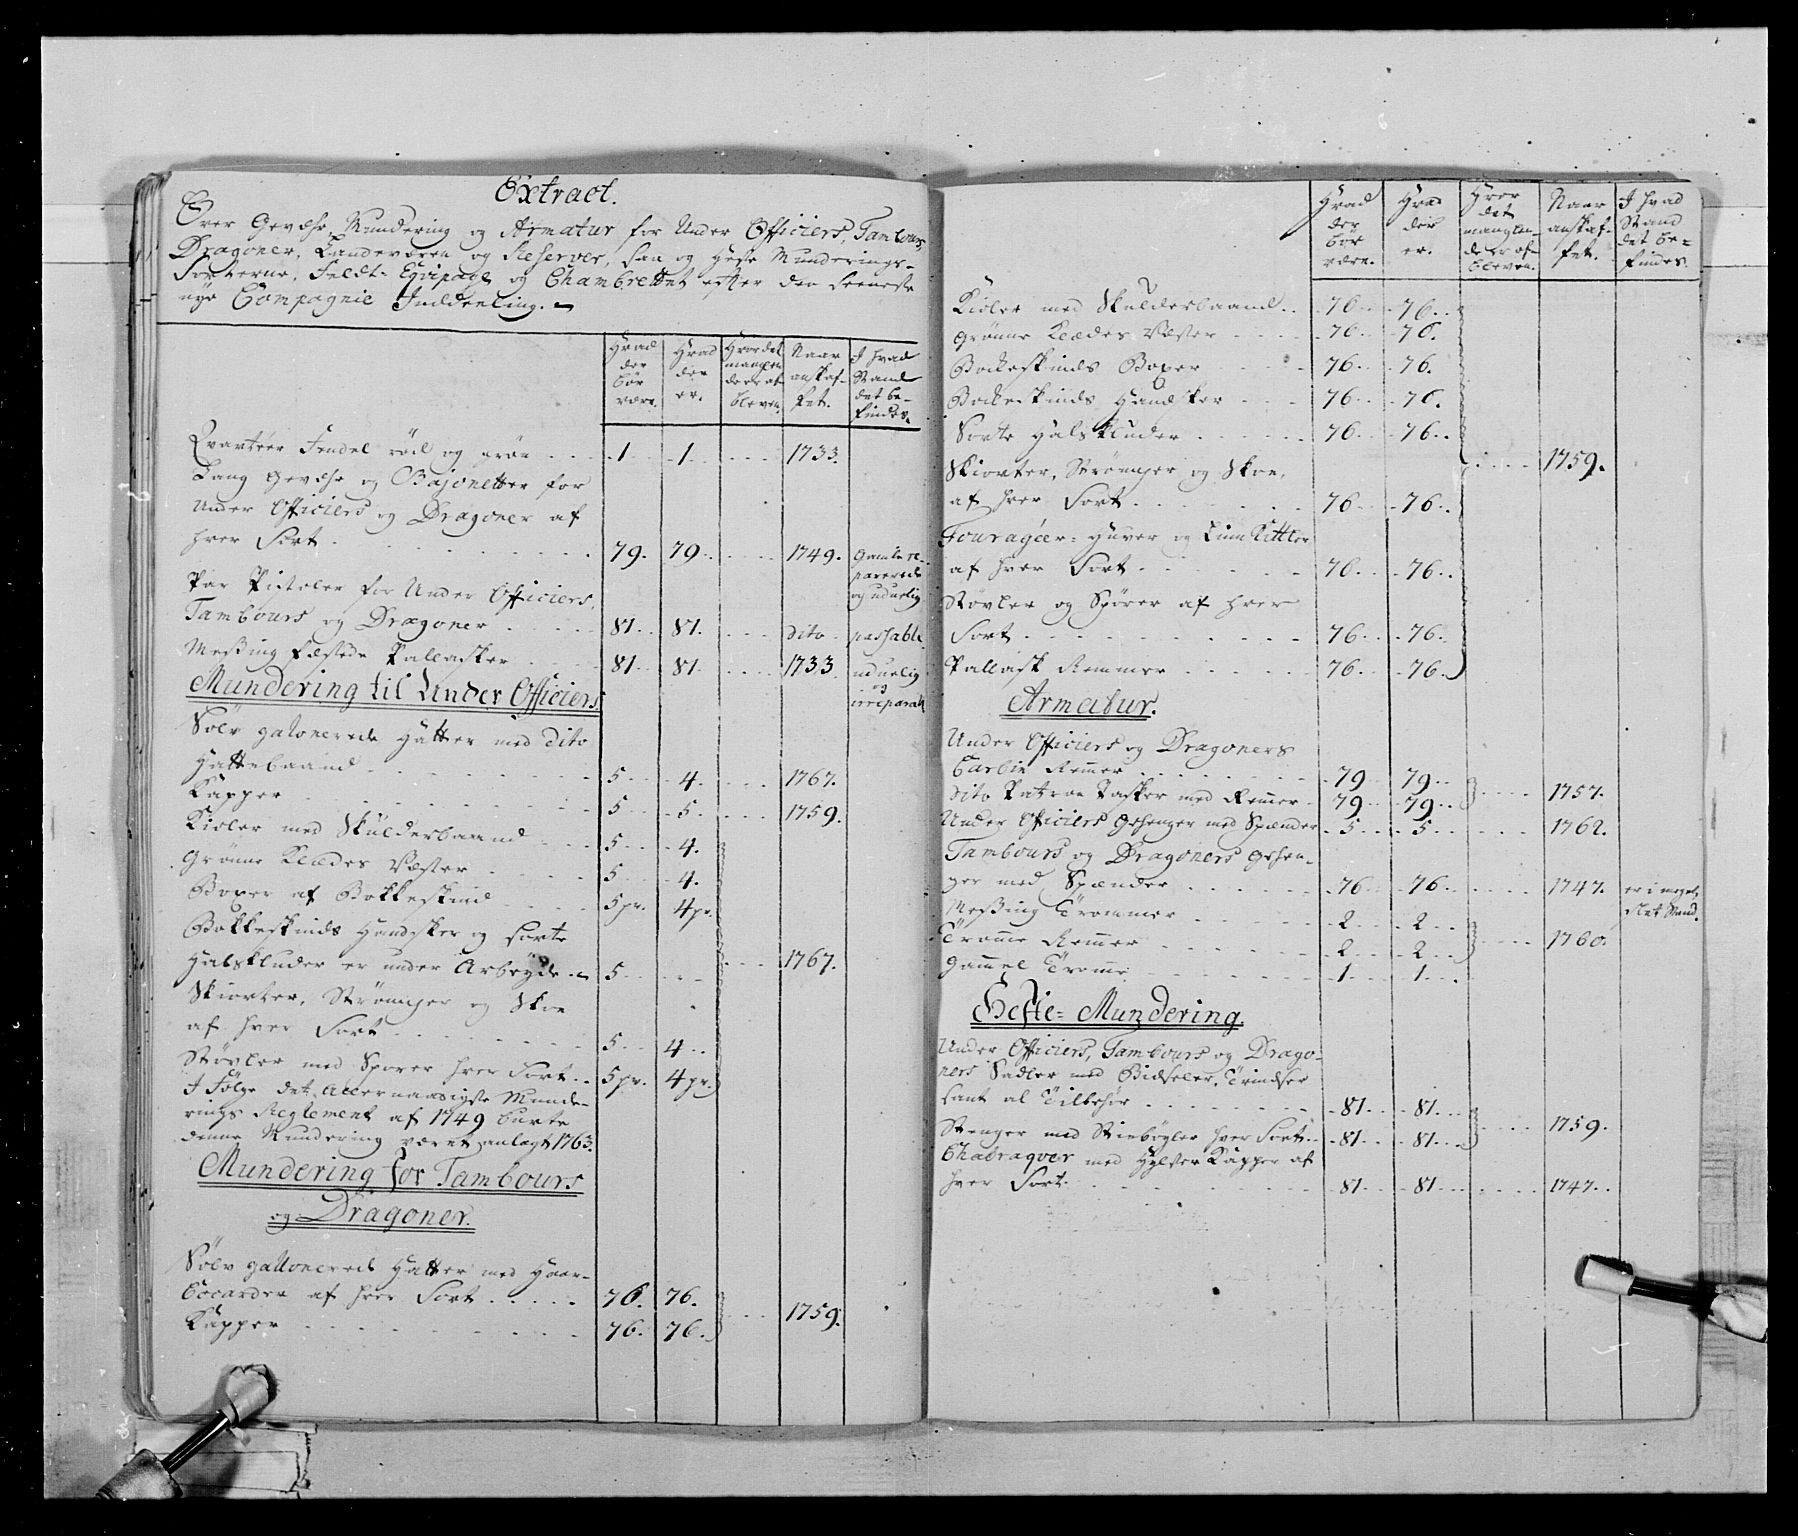 Extract.
Over Gevæhr, Mundering og Armatur for Under Officiers, Tambours,
Dragoner, Landeværn og Reserver, saa og Heste Munderings-
Sorterne, Feldt-Eqvipage og Chambrettet efter den seeneste
nye Compagnie Inddeeling.
Hvad der bør være. | Hvad der er. | Hvor det manglende er afbleven. | Naar anskaffet. | I hvad Stand det befindes.
Qvarteer Fendel röd og grön 1 1 1733.
Lang Gevæhr og Bajonetter for
Under Officiers og Dragoner af
hver Sort 79. 79 1749. gamle reparerede og uduelig
Par Pistoler for Under Officiers,
Tambours og Dragoner 81 81. dito passable
Messing fæstede Pallasker 81 81 1733 uduelig og irreparabl
Mundering til Under Officiers.
Sölv galonerede Hatter med dito
Hattebaand 5 4. 1767.
Kapper 5 5. 1759.
Kioler med Skulderbaand 5 4.
Grønne Klædes Vester 5 4.
Boxer af Bokkeskind 5 pr. 4 pr.
Bokkeskinds Handsker og sorte
Halskluder er under Arbeyde 5 - 1767.
Skiorter, Strömper og Skoe
af hver Sort 5 4
Støvler med Sporer hver Sort 5 pr. 4 pr.
I Fölge det Allernaadigste Munde-
rings Reglement af 1749 burte
denne Mundering været anlagt 1763.
Mundering for Tambours
og Dragoner.
Sölv gallonerede Hatter med Haar-
Cocarder af hver Sort 76. 76. 1759.
Kapper 76. 76.
Hvad der bør være. | Hvad der er. | Hvor det manglende er afbleven. | Naar anskaffet. | I hvad Stand det befindes.
Kioler med Skulderbaand 76 76
Grønne Klædes Vester 76 76.
Bockeskinds Boxer 76 76.
Bockeskinds Handsker 76 76.
Sorte Halskluder 76 76
Skiorter, Strömper og Skoe, 1759.
af hver Sort 76 76
Fouragéer-Huver og Linn Kittler
af hver Sort 76 76
Støvler og Spörer af hver
Sort 76 76
Pallask Remmer 76 76
Armatur.
Under Officiers og Dragoners
Carbin Remer 79 79
Dito Patron Tasker med Remer 79 79 1757.
Under Officiers Gehenger med Spænder 5 5 1762.
Tambours og Dragoners Gehen-
ger med Spænder 76 76 1747. er i meget slet Stand.
Messing Trommer 2 2
Tromme Remer 2 2 1760.
Gammel Tromme 1 1
Heste-Mundering.
Under Officiers, Tambours og Drago-
ners Sadler med Bidseler, Trindser
samt al Tilbehör 81 81
Stenger med Stiebøyler hver Sort 81 81 1759.
Chabraqver med Hylster Kapper af
hver Sort 81 81 1747.